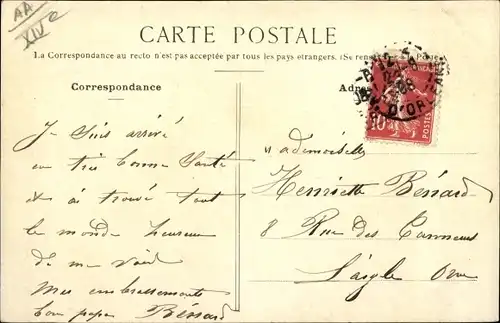 AA
XIV e
CARTE POSTALE
La Correspondance au recto n'est pas acceptée par tous les pays étrangers. (Se renseigner à la Poste
Correspondance
Adresse
10
POSTES
Je suis arrivé
en très bonne santé
et ai trouvé tout
le monde heureux
de me voir
Mes embrassements
Bon papa Bénard
Mademoiselle
Henriette Bénard
8 Rue des Tanneurs
L'aigle Orne